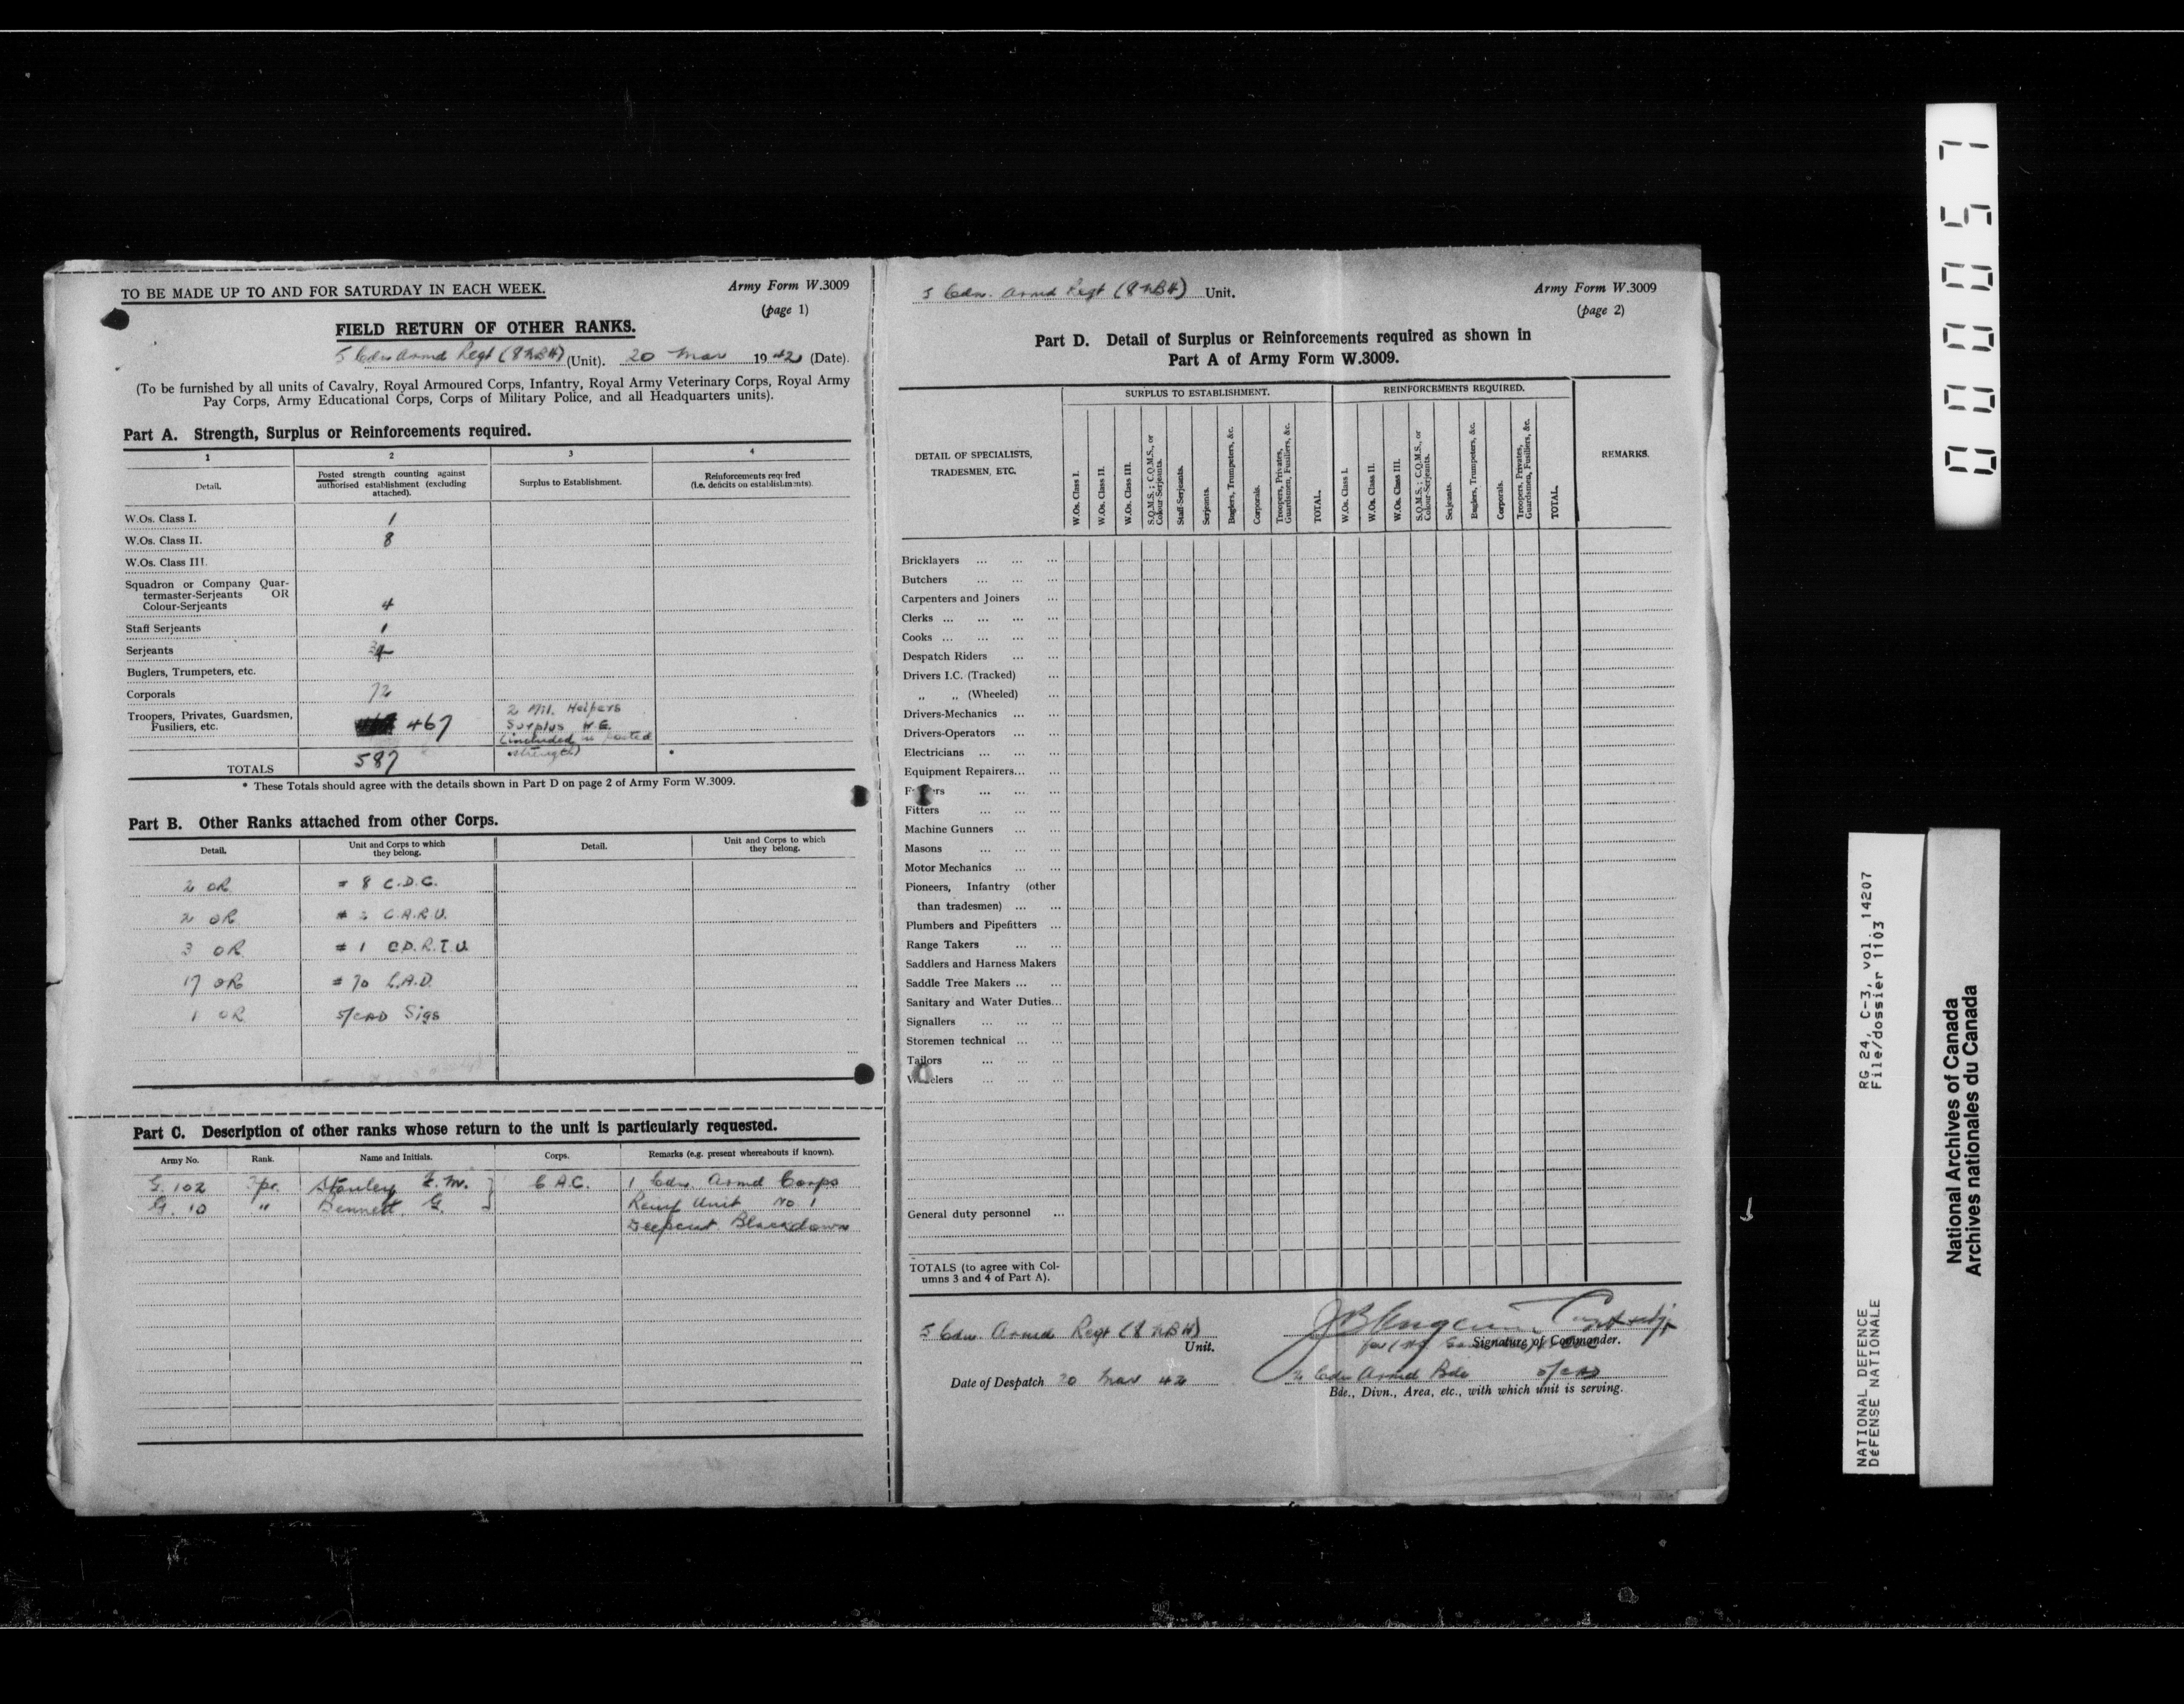 TO BE MADE UP TO AND FOR SATURDAY IN EACH WEEK.
Army Form W.3009
(page 1)
FIELD RETURN OF OTHER RANKS.
5 Cdn Armd Regt (8 NBH) (Unit). 20 Mar 1942 (Date).
(To be furnished by all units of Cavalry, Royal Armoured Corps, Infantry, Royal Army Veterinary Corps, Royal Army
Pay Corps, Army Educational Corps, Corps of Military Police, and all Headquarters units).
Part A. Strength, Surplus or Reinforcements required.
1 2 3 4
Detail.
Posted strength counting against
authorised establishment (excluding
attached).
Surplus to Establishment.
Reinforcements required
(i.e. deficits on establishments).
W.Os. Class I. 1
W.Os. Class II. 8
W.Os. Class III.
Squadron or Company Quar-
termaster-Serjeants OR
Colour-Serjeants 4
Staff Serjeants 1
Serjeants 34
Buglers, Trumpeters, etc.
Corporals 72
Troopers, Privates, Guardsmen,
Fusiliers, etc. 467
2 Mil. Helpers
Surplus W.E.
(included in posted
strength)
TOTALS 587 *
* These Totals should agree with the details shown in Part D on page 2 of Army Form W.3009.
Part B. Other Ranks attached from other Corps.
Detail.
Unit and Corps to which
they belong.
Detail.
Unit and Corps to which
they belong.
2 OR # 8 C.D.C.
2 OR # 2 C.A.R.U.
3 OR # 1 C.D.R.T.U.
17 OR # 70 L.A.D.
1 OR 5/CAD Sigs
Part C. Description of other ranks whose return to the unit is particularly requested.
Army No. Rank. Name and Initials. Corps. Remarks (e.g. present whereabouts if known).
G. 102 Tpr. Stanley F.M. C.A.C. 1 Cdn. Armd Corps
G. 10 " Bennett G. Reinf Unit No 1
Deepcut Blackdown
5 Cdn. Armd Regt (8 NBH) Unit.
Army Form W.3009
(page 2)
Part D. Detail of Surplus or Reinforcements required as shown in
Part A of Army Form W.3009.
DETAIL OF SPECIALISTS,
TRADESMEN, ETC.
SURPLUS TO ESTABLISHMENT.
W.Os. Class I.
W.Os. Class II.
W.Os. Class III.
S.Q.M.S.; C.Q.M.S., or
Colour-Serjeants.
Staff-Serjeants.
Serjeants.
Buglers, Trumpeters, &c.
Corporals.
Troopers, Privates,
Guardsmen, Fusiliers, &c.
TOTAL.
REINFORCEMENTS REQUIRED.
W.Os. Class I.
W.Os. Class II.
W.Os. Class III.
S.Q.M.S.; C.Q.M.S., or
Colour-Serjeants.
Serjeants.
Buglers, Trumpeters, &c.
Corporals.
Troopers, Privates,
Guardsmen, Fusiliers, &c.
TOTAL.
REMARKS.
Bricklayers ... ... ...
Butchers ... ... ...
Carpenters and Joiners ...
Clerks ... ... ... ...
Cooks ... ... ... ...
Despatch Riders ... ...
Drivers I.C. (Tracked) ...
" " (Wheeled) ...
Drivers-Mechanics ... ...
Drivers-Operators ... ...
Electricians ... ... ...
Equipment Repairers... ...
Fitters ... ... ...
Machine Gunners ... ...
Masons ... ... ...
Motor Mechanics ... ...
Pioneers, Infantry (other
than tradesmen) ... ...
Plumbers and Pipefitters ...
Range Takers ... ...
Saddlers and Harness Makers
Saddle Tree Makers ... ...
Sanitary and Water Duties...
Signallers ... ... ...
Storemen technical ... ...
Tailors ... ... ...
General duty personnel ...
TOTALS (to agree with Col-
umns 3 and 4 of Part A).
5 Cdn. Armd Regt (8 NBH)
Unit.
Capt Adjt
Signature of Commander.
Date of Despatch 20 Mar 42
Cdn Armd Bde 5/CAD
Bde., Divn., Area, etc., with which unit is serving.
000057
NATIONAL DEFENCE
DéFENSE NATIONALE
RG 24, C-3, vol. 14207
File/dossier 1103
National Archives of Canada
Archives nationales du Canada